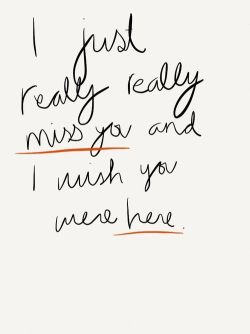 I just
really really
miss you and
I wish you
were here.